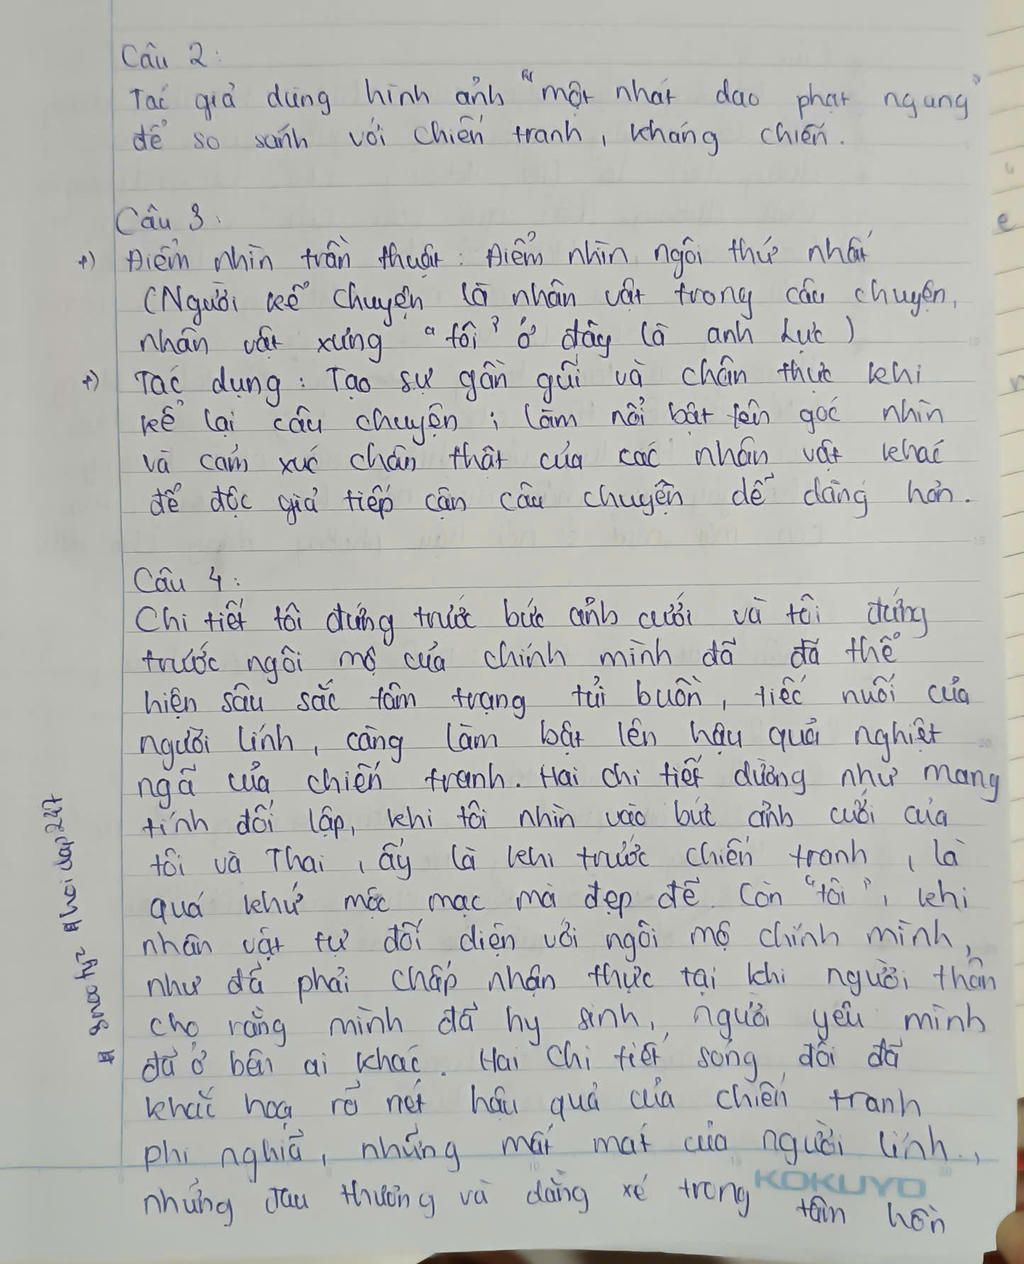 Câu 2:
Tác giả dùng hình ảnh "một nhát dao phạt ngang"
để so sánh với chiến tranh, kháng chiến.
Câu 3:
+) Điểm nhìn trần thuật: Điểm nhìn ngôi thứ nhất
(Người kể chuyện là nhân vật trong câu chuyện,
nhân vật xưng "tôi" ở đây là anh Lực)
+) Tác dụng: Tạo sự gần gũi và chân thực khi
kể lại câu chuyện; làm nổi bật lên góc nhìn
và cảm xúc chân thật của các nhân vật khác
để độc giả tiếp cận câu chuyện dễ dàng hơn.
Câu 4:
Chi tiết tôi đứng trước bức ảnh cưới và tôi đứng
trước ngôi mộ của chính mình đã đã thể
hiện sâu sắc tâm trạng tủi buồn, tiếc nuối của
người lính, càng làm bật lên hậu quả nghiệt
ngã của chiến tranh. Hai chi tiết dường như mang
tính đối lập, khi tôi nhìn vào bức ảnh cưới của
tôi và Thai, ấy là khi trước chiến tranh, là
quá khứ mộc mạc mà đẹp đẽ. Còn "tôi", khi
nhân vật tự đối diện với ngôi mộ chính mình,
như đã phải chấp nhận thực tại khi người thân
cho rằng mình đã hy sinh, người yêu mình
đã ở bên ai khác. Hai chi tiết song đôi đã
khắc hoạ rõ nét hậu quả của chiến tranh
phi nghĩa, những mất mát của người lính,
những đau thương và dằng xé trong
tâm hồn
KOKUYO
# hoidap247